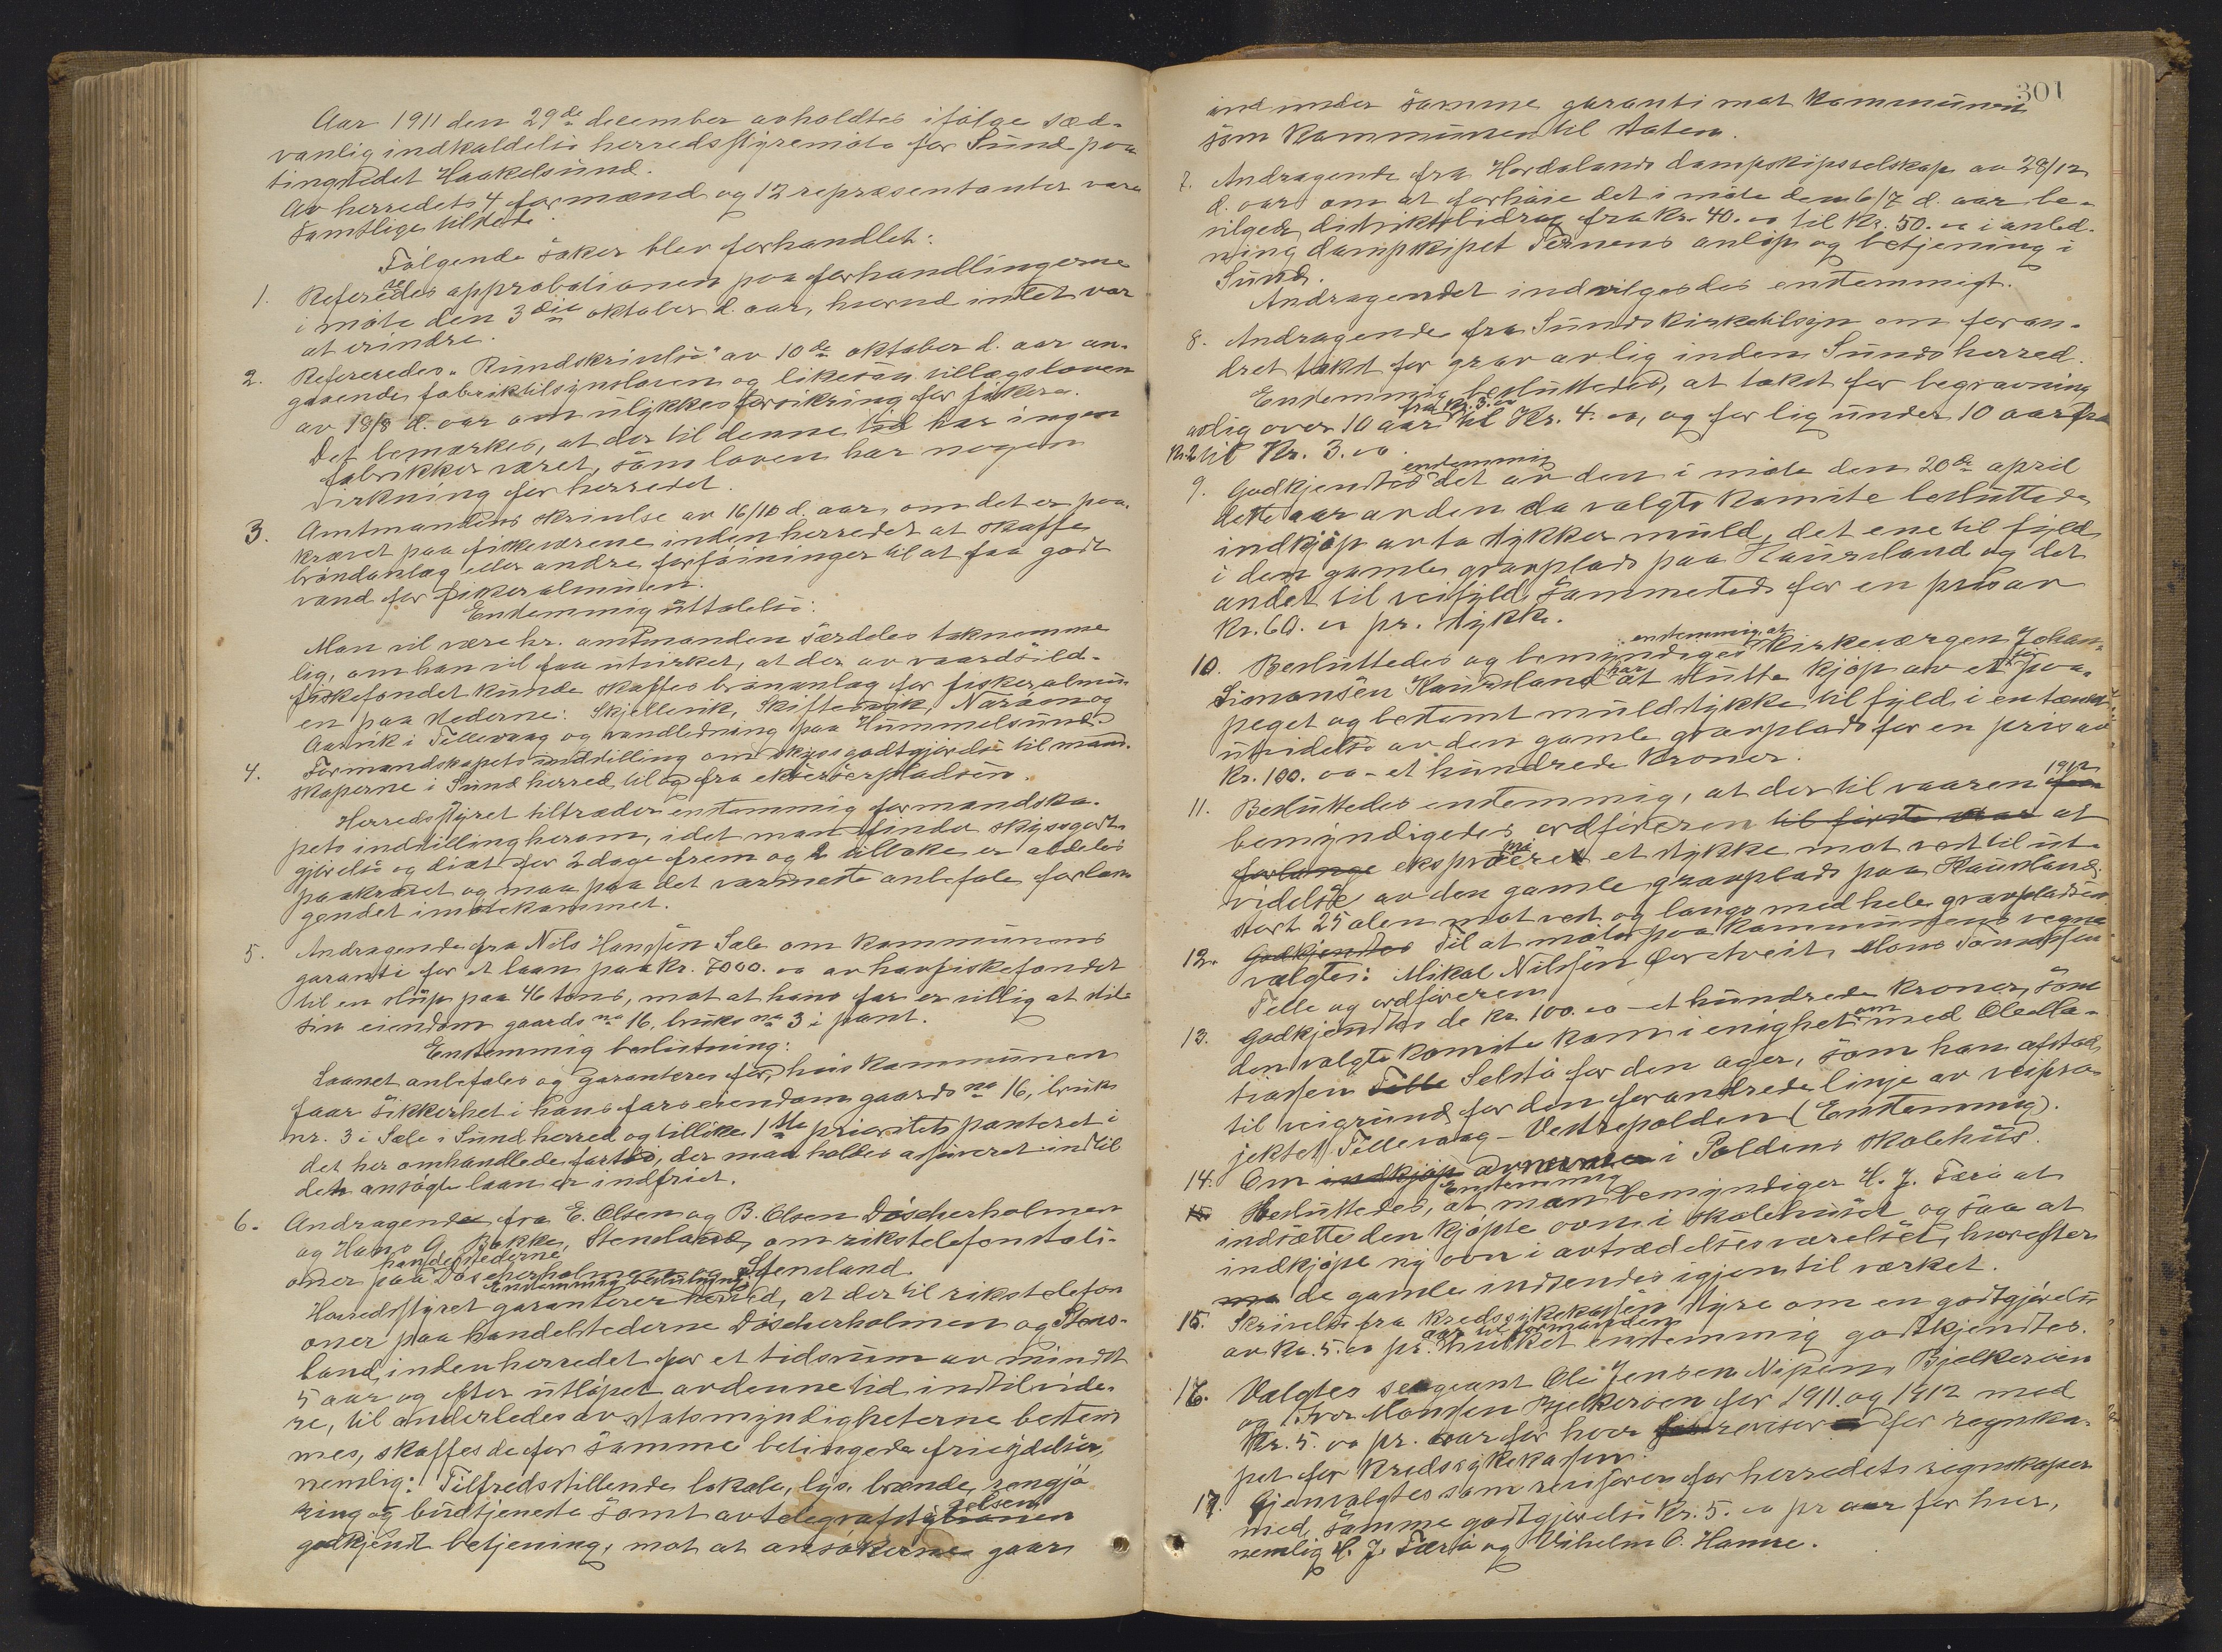 Aar 1911 den 29de december avholdtes ifølge sæd-
vanlig indkaldelse herredsstyremøte for Sund paa
tingstedet Haakelsund.
Av herredets 4 formænd og 12 repræsentanter vare
samtlige tilstede.
Følgende saker blev forhandlet:
1. Refereredes approbationen paa forhandlingerne
i møte den 3die oktober d. aar, hvorved intet var
at erindre.
2. Refereredes "Rundskrivelse" av 10de oktober d. aar an-
gaaende fabriktilsynsloven og likesaa tillægsloven
av 18/8 d. aar om ulykkesforsikring for fiskere.
Det bemærkes, at der til denne tid har ingen
fabrikker været, som loven har nogen
virkning for herredet.
3. Amtmandens skrivelse av 16/10 d. aar, om det er paa-
krævet paa fiskeværene inden herredet at skaffe
brøndanlæg eller andre forføininger til at faa godt
vand for fiskeralmuen.
Enstemmig uttalelse:
Man vil være hr. amtmanden særdeles taknemme
lig, om han vil faa utvirket, at der av vaarsild-
fiskefondet kunde skaffes brønanlæg for fiskeralmu-
en paa stederne: Skjellevik, Skiftesvik, Narøen og
Aarvik i Tellevaag og vandledning paa Hummelsund.
4. Formandskapets indstilling om skyssgodtgjørelse til mand-
skaperne i Sund herred til og fra ekserserpladsen.
Herredsstyret tiltræder enstemmig formandska-
pets indstilling herom, idet man finder skyssgodt-
gjørelse og diæt for 2 dage frem og 2 tilbake er aldeles
paakrævet og maa paa det varmeste anbefale forlan-
gendet imøtekommet.
5. Andragende fra Nils Hanssen Sæle om kommunens
garanti for et laan paa kr. 7000.00 av havfiskefondet
til en slup paa 46 tons, mot at hans far er villig at stile
sin eiendom gaards no 16, bruks no 3 i pant.
Enstemmig beslutning:
Laanet anbefales og garanteres for, hvis kommunen
faar sikkerhet i hans fars eiendom gaards no 16, bruks
nr. 3 i Sæle i Sund herred og tillike 1ste prioritets panteret i
det her omhandlede fartøi, der maa holdes assureret indtil
det ansøgte laan er indfriet.
6. Andragende fra E. Olsen og B. Olsen Døscherholmen
og Hans G. Bakke, Stensland, om rikstelefonstati-
oner paa handelsstederne Døscherholmen og Stensland.
Enstemmig beslutning:
Herredsstyret garanterer herved, at der til rikstelefon
oner paa handelstederne Døscherholmen og Stens-
land, inden herredet for et tidsrum av mindst
5 aar og efter utløpet av denne tid indtil vide-
re, til anderledes av statsmyndigheterne bestem
mes, skaffes de for samme betingede friydelser,
nemlig: Tilfredsstillende lokale, lys, brænde, rengjø
ring og budtjeneste samt av telegrafstyrelsen
godkjendt betjening, mot at ansøkerne gaar
301
ind under samme garanti mot kommunen
som kommunen til staten.
7. Andragende fra Hordalands dampskipsselskap av 28/12
d. aar om at forhøie det i møte den 6/7 d. aar be-
vilgede distriktsbidrag fra kr. 40.00 til kr. 50.00 i anled-
ning dampskipet Ternens anløp og betjening i
Sund.
Andragendet indvilgedes enstemmigt.
8. Andragende fra Sunds kirketilsyn om foran-
dret takst for grav av lig inden Sunds herred.
Enstemmig besluttedes, at takst for begravning
av lig over 10 aar fra kr. 3.00 til Kr. 4.00, og for lig under 10 aar fra
kr. 2 til Kr. 3.00.
9. Godkjendtes enstemmig det av den i møte den 20de april
dette aar av den da valgte komite besluttede
indkjøp av to stykker muld, det ene til fyld
i den gamle gravplads paa Kausland og det
andet til veifyld sammesteds for en pris av
Kr. 60.00 pr. stykke.
10. Besluttedes og bemyndiges enstemmig, at kirkeværgen Johan-
Simonsen Kausland har at slutte kjøp av et før paa-
peget og bestemt muldstykke til fyld i en tænkt
utvidelse av den gamle gravplads for en pris av
Kr. 100.00 - et hundrede kroner.
11. Besluttedes enstemmig, at der til vaaren 1912
bemyndigedes ordføreren til første vaar at
forlange ekspropriere et stykke mot vest til ut-
videlse av den gamle gravplads paa Kausland,
stort 25 alen mot vest og langs med hele gravpladsen.
12. Godkjendtes Til at møte paa kommunens vegne
valgtes: Mikal Nilssen Førtveit, Mons Tomassen
Telle og ordføreren.
13. Godkjendtes de kr. 100.00 - et hundrede kroner, som
den valgte komite kom i enighet om med Ole Ma-
tiassen Telle Selstø for den ager, som han afstod
til veigrund for den forandrede linje av veipro-
jektet Tellevaag - Vestrepolden (Enstemmig).
14. Om indkjøp av i Poldens skolehus.
Besluttedes, Enstemmig at man bemyndiger H. J. Tærø at
indsætte den kjøpte oven i skolehuset og saa at
indkjøpe ny ovn i avtrædelsesværelset, hvorefter
de gamle indsendes igjen til værket.
15. Skrivelse fra kredssykekassens styre om en godtgjørelse
av kr. 5.00 pr. aar til formanden, hvilket enstemmig godkjendtes.
16. Valgtes sergeant Ole Jensen Nipen, Bjelkerøen
og Iver Monssen Bjelkerøen for 1911 og 1912 med
Kr. 5.00 pr. aar for hver revisor for regnska-
pet for kredssykekassen.
17. Gjenvalgtes som revisorer for herredets regnskaper
med samme godtgjørelse kr. 5.00 pr aar for hver,
nemlig H. J. Tærø og Vilhelm O. Hamre.